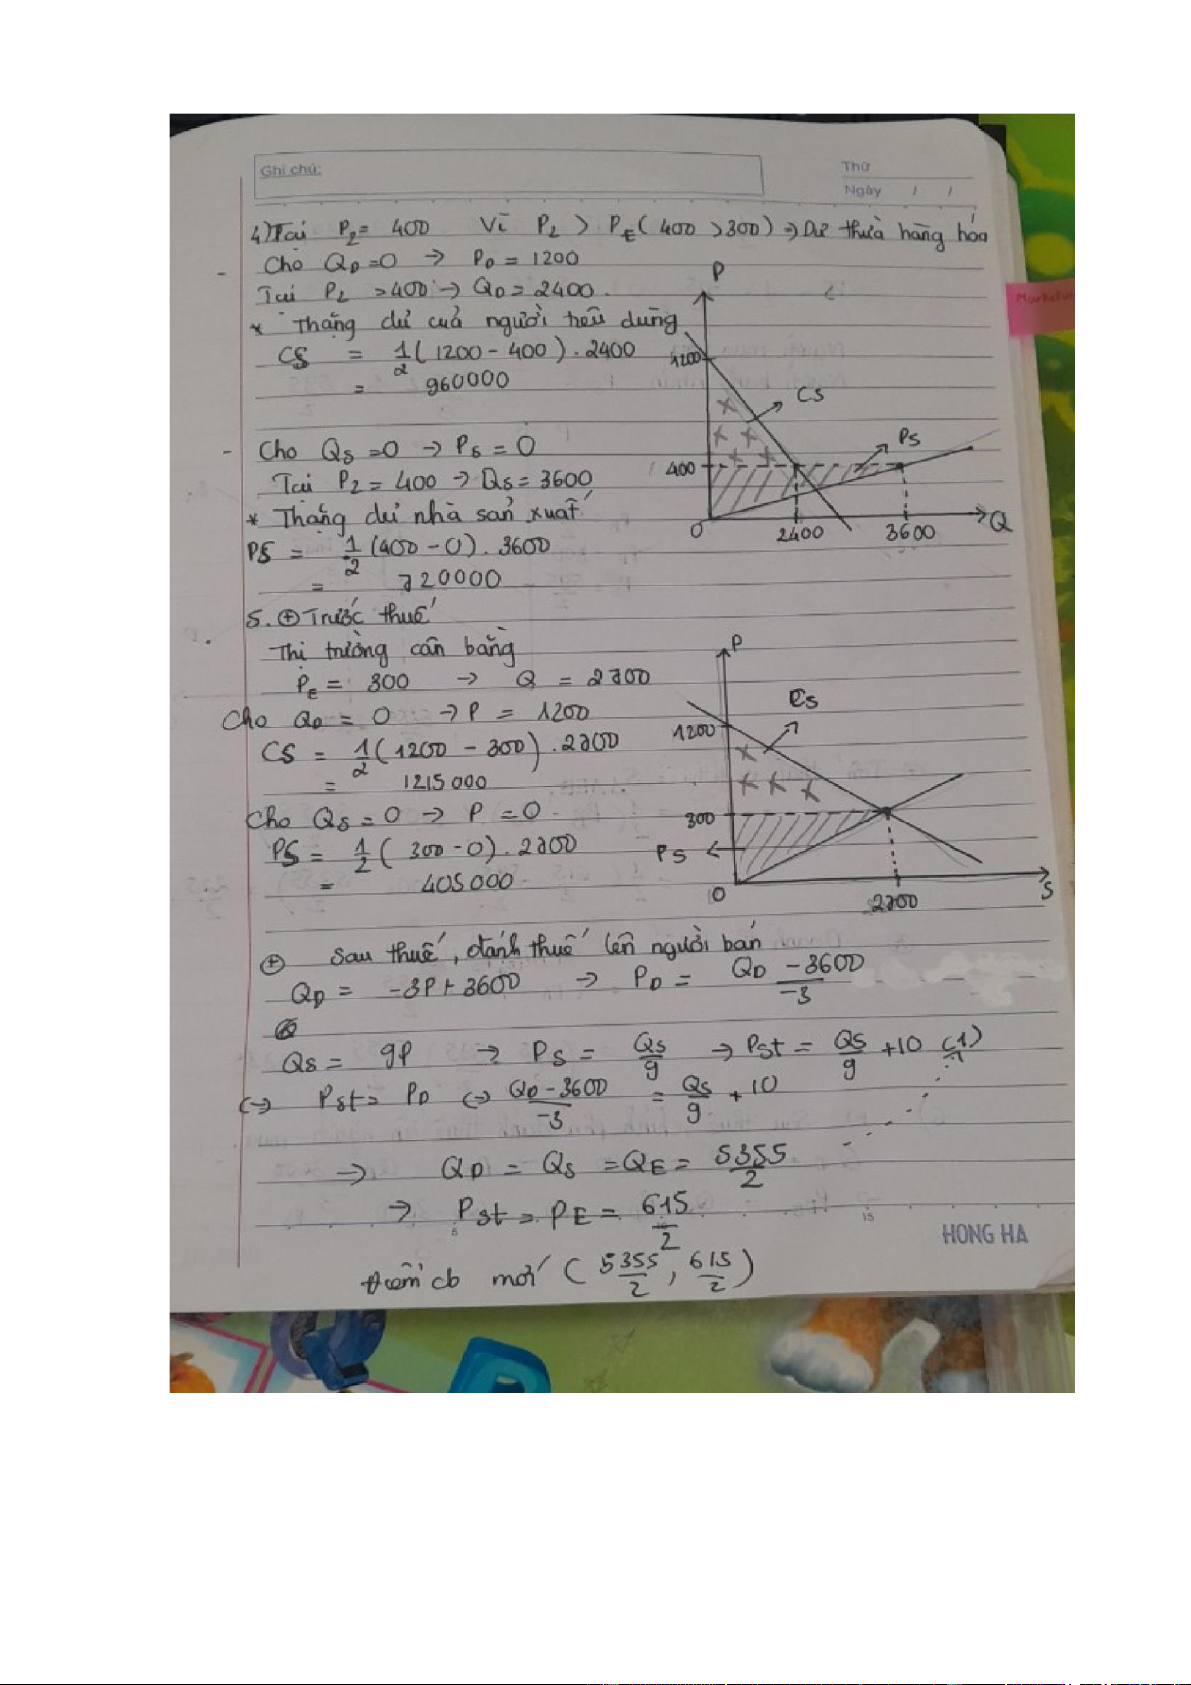 Ghi chú:
Thứ
Ngày / /
4) Tại P2 = 400 Vì P2 > PE (400 > 300) => Dư thừa hàng hóa
- Cho QD = 0 -> PD = 1200
Tại P2 = 400 -> QD = 2400
* Thặng dư của người tiêu dùng
CS = 1/2 (1200 - 400) . 2400
= 960000
- Cho QS = 0 -> PS = 0
Tại P2 = 400 -> QS = 3600
* Thặng dư nhà sản xuất
PS = 1/2 (400 - 0) . 3600
= 720000
P
1200
CS
PS
400
O
2400
3600
Q
Marketin
5. ⊕ Trước thuế
Thị trường cân bằng
PE = 300 -> Q = 2700
Cho QD = 0 -> P = 1200
CS = 1/2 (1200 - 300) . 2700
= 1215000
Cho QS = 0 -> P = 0
PS = 1/2 (300 - 0) . 2700
= 405000
P
CS
1200
300
PS
O
2700
S
⊕ Sau thuế, đánh thuế lên người bán
QD = -3P + 3600 -> PD = (QD - 3600)/-3
QS = 9P -> PS = QS/9 -> PSt = QS/9 + 10 (1)
<-> PSt = PD <-> (QD - 3600)/-3 = QS/9 + 10
-> QD = QS = QE = 5355/2
-> PSt = PE = 615/2
Điểm cb mới (5355/2, 615/2)
HONG HA